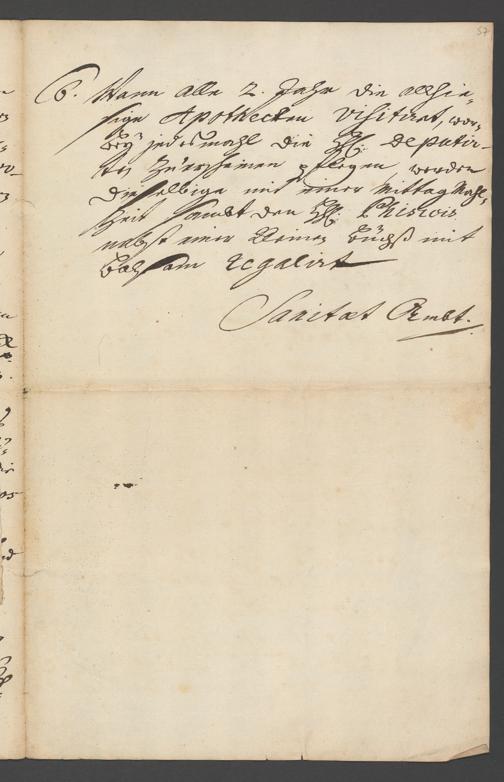 57
6. Wann alle 2. Jahr die allhie-
sige Apothecken visitirt, wor-
bey jedesmahl die HH: Deputir-
ten zu erscheinen pflegen, werden
dieselbige mit einer Mittag Mahl-
Zeit sambt den HH: Phisicis
nebst einer kleinen Büchß mit
Balsam regalirt
Sanitæt Ambt.